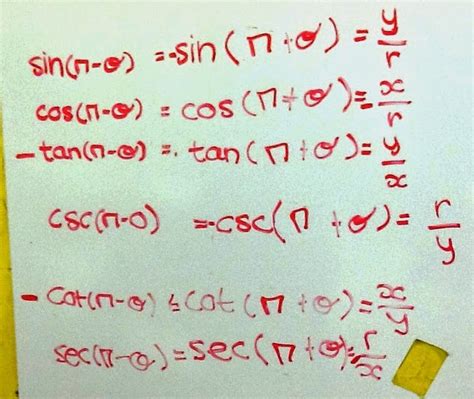 sin(π-θ) = -sin(π+θ) = y/r
cos(π-θ) = cos(π+θ) = x/r
-tan(π-θ) = tan(π+θ) = y/x
csc(π-θ) = -csc(π+θ) = r/y
-cot(π-θ) = cot(π+θ) = x/y
sec(π-θ) = sec(π+θ) = r/x